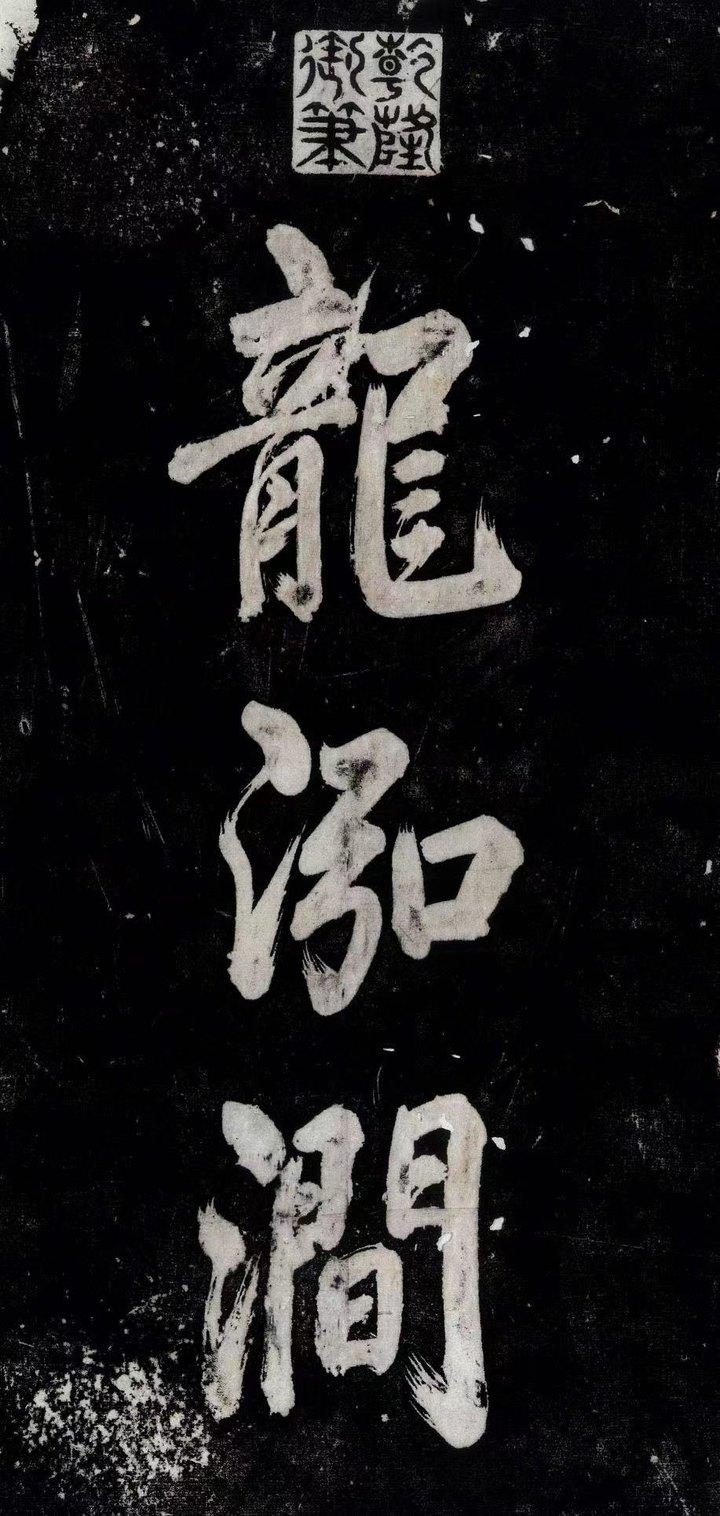 乾隆
御筆
龍泓澗